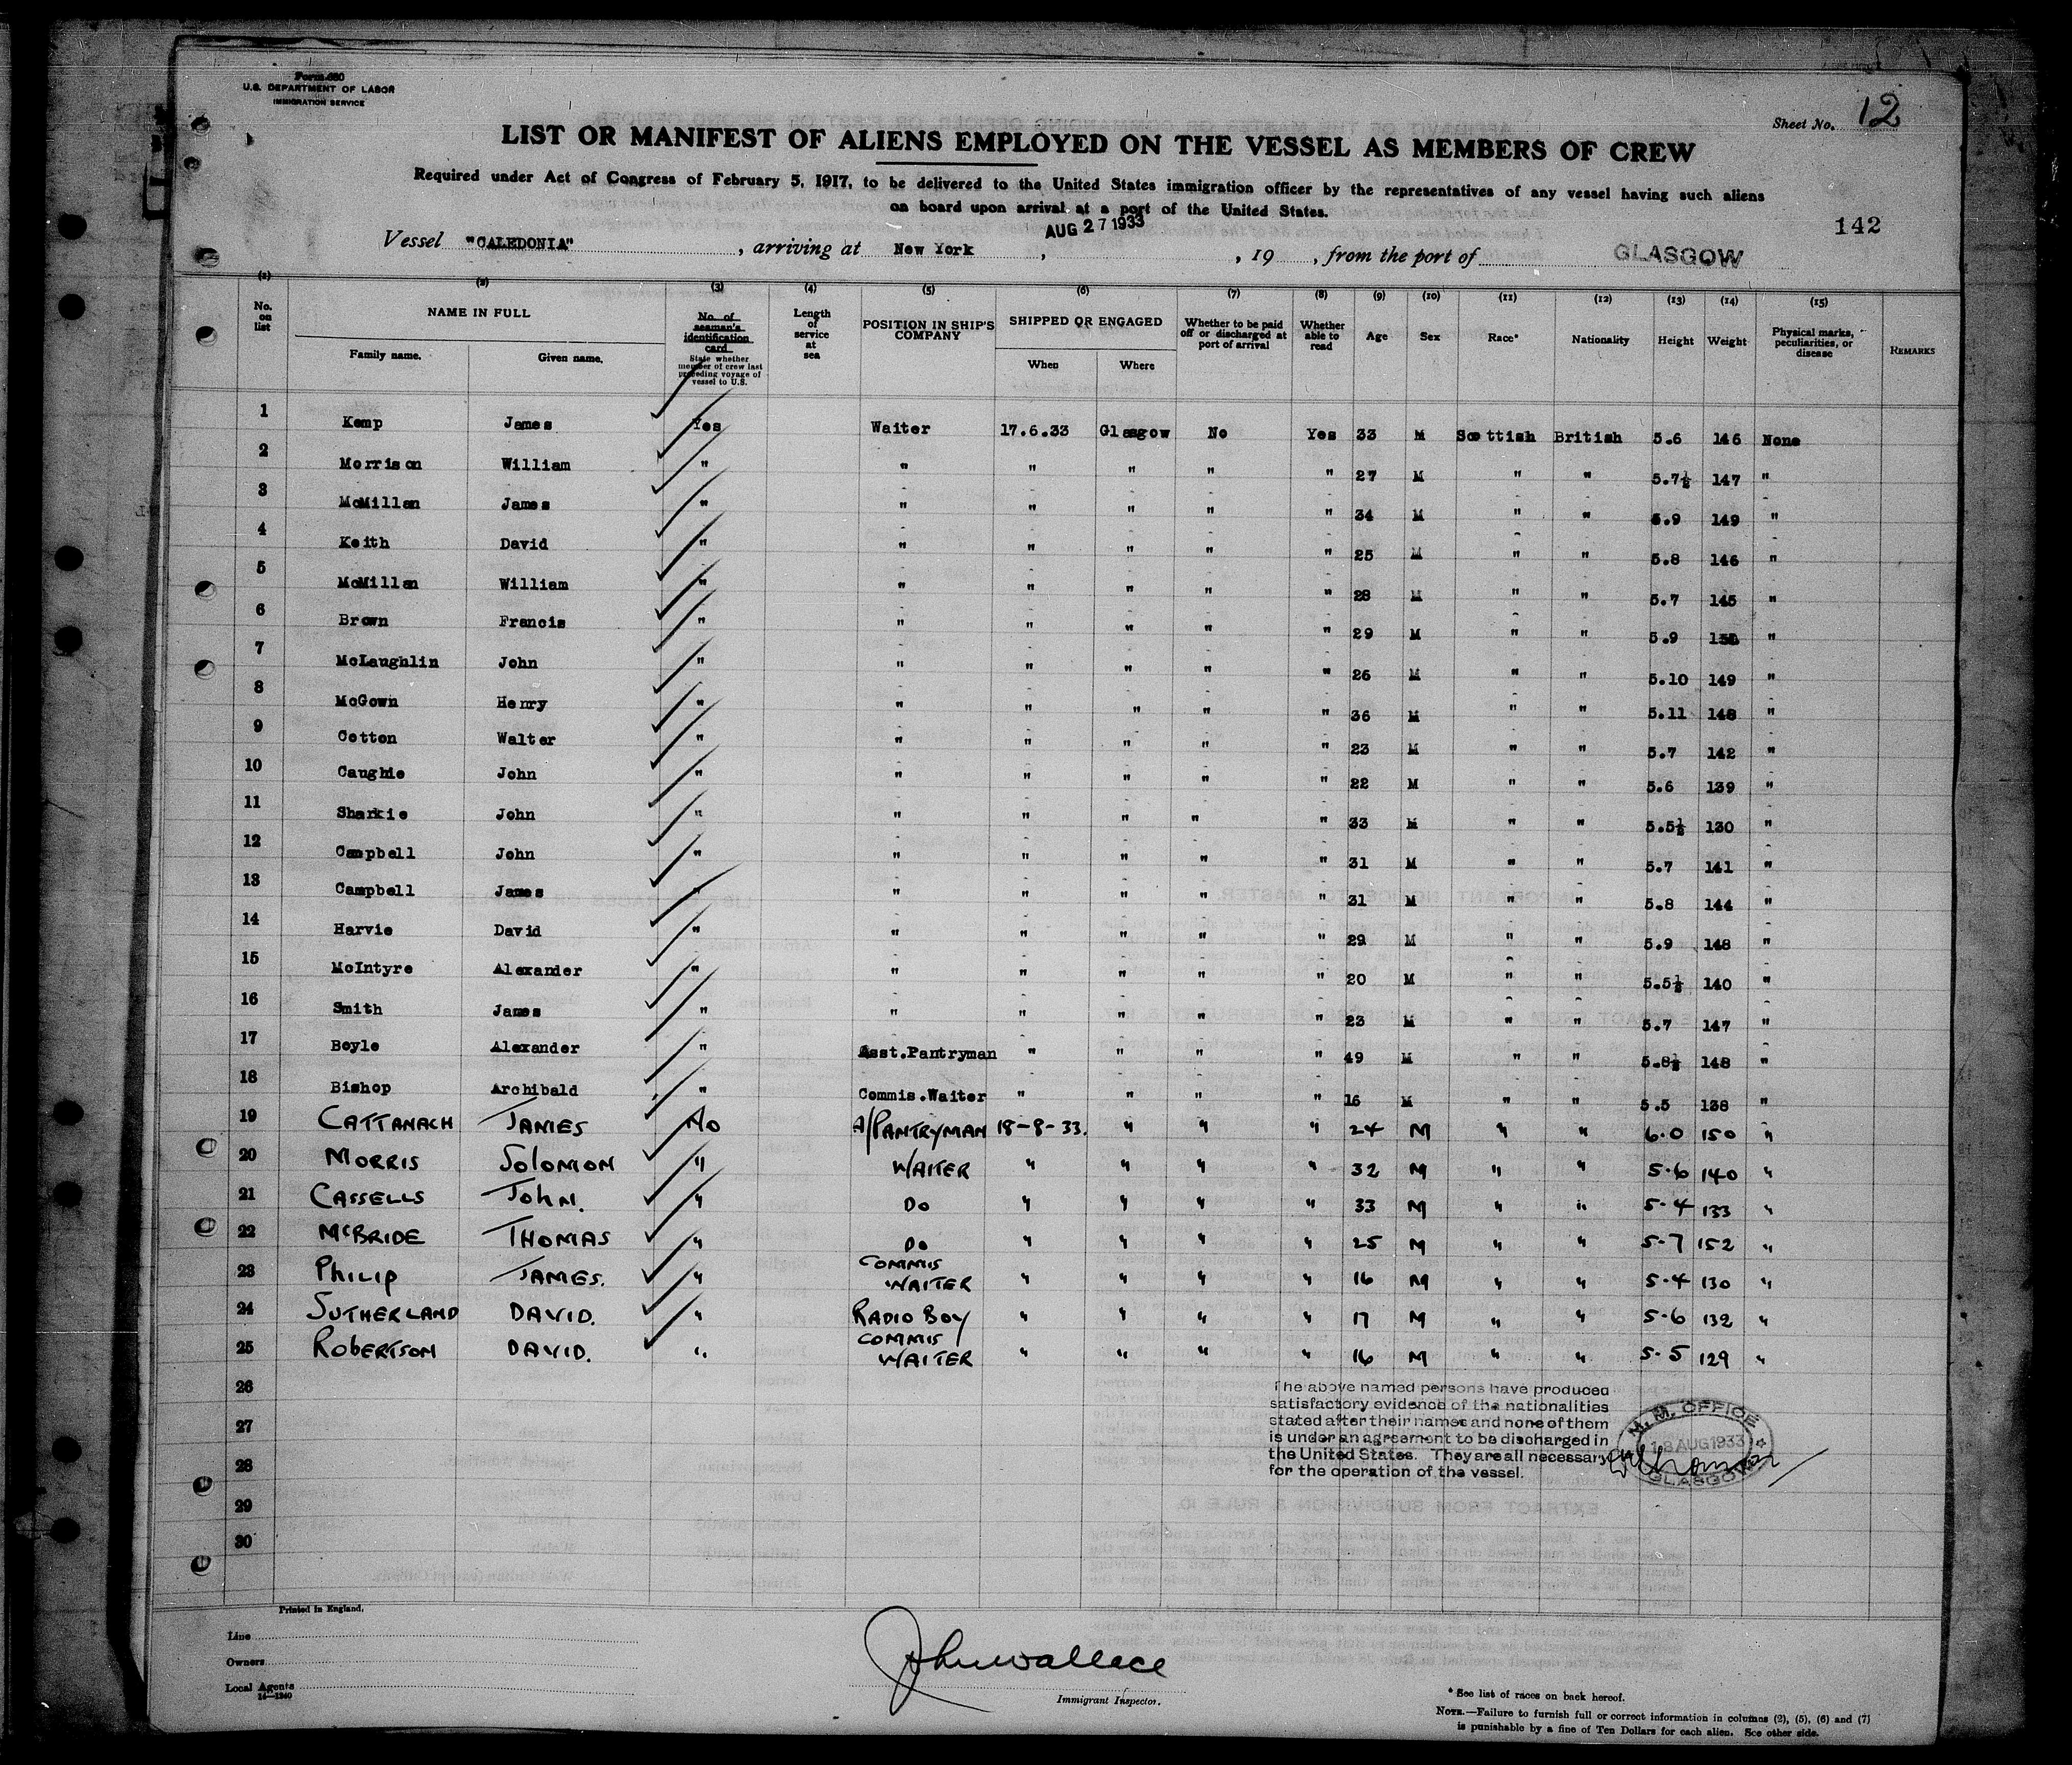 Form 680
U.S. DEPARTMENT OF LABOR
IMMIGRATION SERVICE
Sheet No. 12
LIST OR MANIFEST OF ALIENS EMPLOYED ON THE VESSEL AS MEMBERS OF CREW
Required under Act of Congress of February 5, 1917, to be delivered to the United States immigration officer by the representatives of any vessel having such aliens
on board upon arrival at a port of the United States.
142
AUG 27 1933
Vessel "CALEDONIA", arriving at New York, , 19 , from the port of GLASGOW
(1) (2) (3) (4) (5) (6) (7) (8) (9) (10) (11) (12) (13) (14) (15)
No. on list NAME IN FULL Family name. Given name. No. of seaman's identification card State whether member of crew last preceding voyage of vessel to U.S. Length of service at sea POSITION IN SHIP'S COMPANY SHIPPED OR ENGAGED When Where Whether to be paid off or discharged at port of arrival Whether able to read Age Sex Race* Nationality Height Weight Physical marks, peculiarities, or disease REMARKS
1 Kemp James Yes Waiter 17.6.33 Glasgow No Yes 33 M Scottish British 5.6 146 None
2 Morrison William " " " " " " 27 M " " 5.7½ 147 "
3 McMillan James " " " " " " 34 M " " 5.9 149 "
4 Keith David " " " " " " 25 M " " 5.8 146 "
5 McMillan William " " " " " " 28 M " " 5.7 145 "
6 Brown Francis " " " " " " 29 M " " 5.9 "
7 McLaughlin John " " " " " " 26 M " " 5.10 149 "
8 McGown Henry " " " " " " 36 M " " 5.11 148 "
9 Cotton Walter " " " " " " 23 M " " 5.7 142 "
10 Caughie John " " " " " " 22 M " " 5.6 139 "
11 Sharkie John " " " " " " 33 M " " 5.5½ 130 "
12 Campbell John " " " " " " 31 M " " 5.7 141 "
13 Campbell James " " " " " " 31 M " " 5.8 144 "
14 Harvie David " " " " " " 29 M " " 5.9 148 "
15 McIntyre Alexander " " " " " " 20 M " " 5.5½ 140 "
16 Smith James " " " " " " 23 M " " 5.7 147 "
17 Boyle Alexander " Asst.Pantryman " " " " 49 M " " 5.8½ 148 "
18 Bishop Archibald " Commis.Waiter " " " " 16 M " " 5.5 138 "
19 CATTANACH JAMES No A/PANTRYMAN 18-8-33. " " " 24 M " " 6.0 150 "
20 MORRIS SOLOMON " WAITER " " " " 32 M " " 5.6 140 "
21 CASSELLS JOHN. " DO " " " " 33 M " " 5.4 133 "
22 McBRIDE THOMAS " DO " " " " 25 M " " 5.7 152 "
23 PHILIP JAMES. " COMMIS WAITER " " " " 16 M " " 5.4 130 "
24 SUTHERLAND DAVID. " RADIO BOY " " " " 17 M " " 5.6 132 "
25 ROBERTSON DAVID. " COMMIS WAITER " " " " 16 M " " 5.5 129 "
26
27
28
29
30
The above named persons have produced
satisfactory evidence of the nationalities
stated after their names and none of them
is under an agreement to be discharged in
the United States. They are all necessary
for the operation of the vessel.
M.M. OFFICE
18 AUG 1933
GLASGOW
Printed in England.
Line
Owners
Local Agents
14—1240
John Wallace
Immigrant Inspector.
* See list of races on back hereof.
NOTE.—Failure to furnish full or correct information in columns (2), (5), (6) and (7)
is punishable by a fine of Ten Dollars for each alien. See other side.